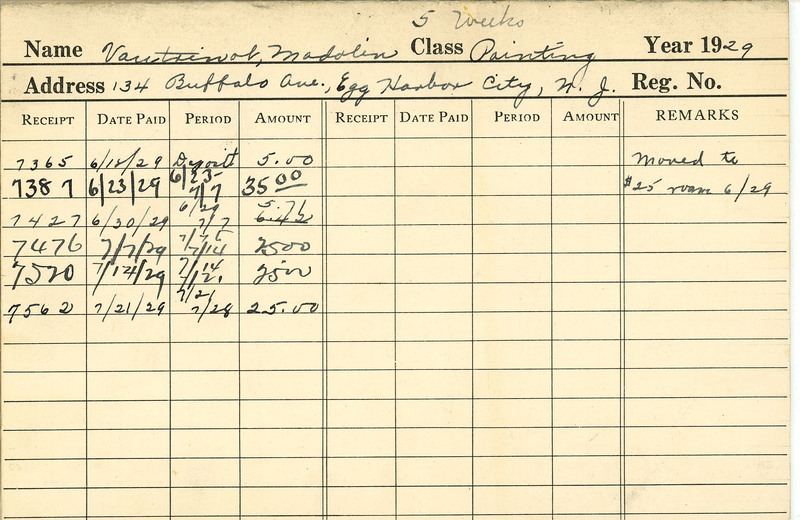 5 Weeks
Name Vautrinot, Madolin Class Painting Year 1929
Address 134 Buffalo Ave., Egg Harbor City, N. J. Reg. No.
RECEIPT DATE PAID PERIOD AMOUNT RECEIPT DATE PAID PERIOD AMOUNT REMARKS
7365 6/18/29 Deposit 5.00 Moved to
7387 6/23/29 6/23- 7/7 35.00 $25 room 6/29
7427 6/30/29 6/29 7/7 5.71 6.42
7476 7/7/29 7/14 2500
7520 7/14/29 7/14 2500
7562 7/21/29 7/21 7/28 25.00